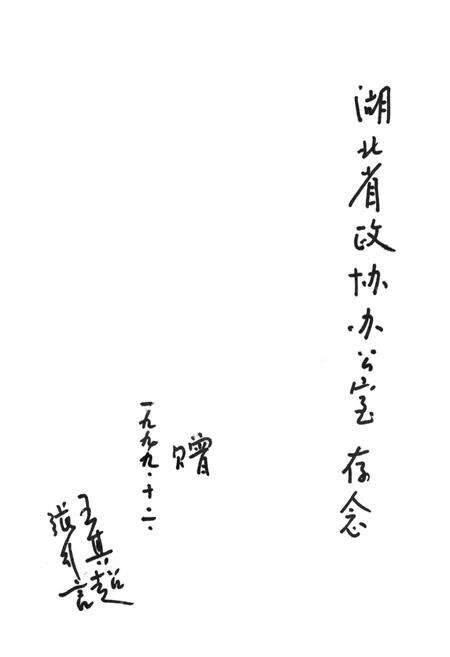 湖北省政协办公室 存念
赠
一九九九·十·二·
王真超